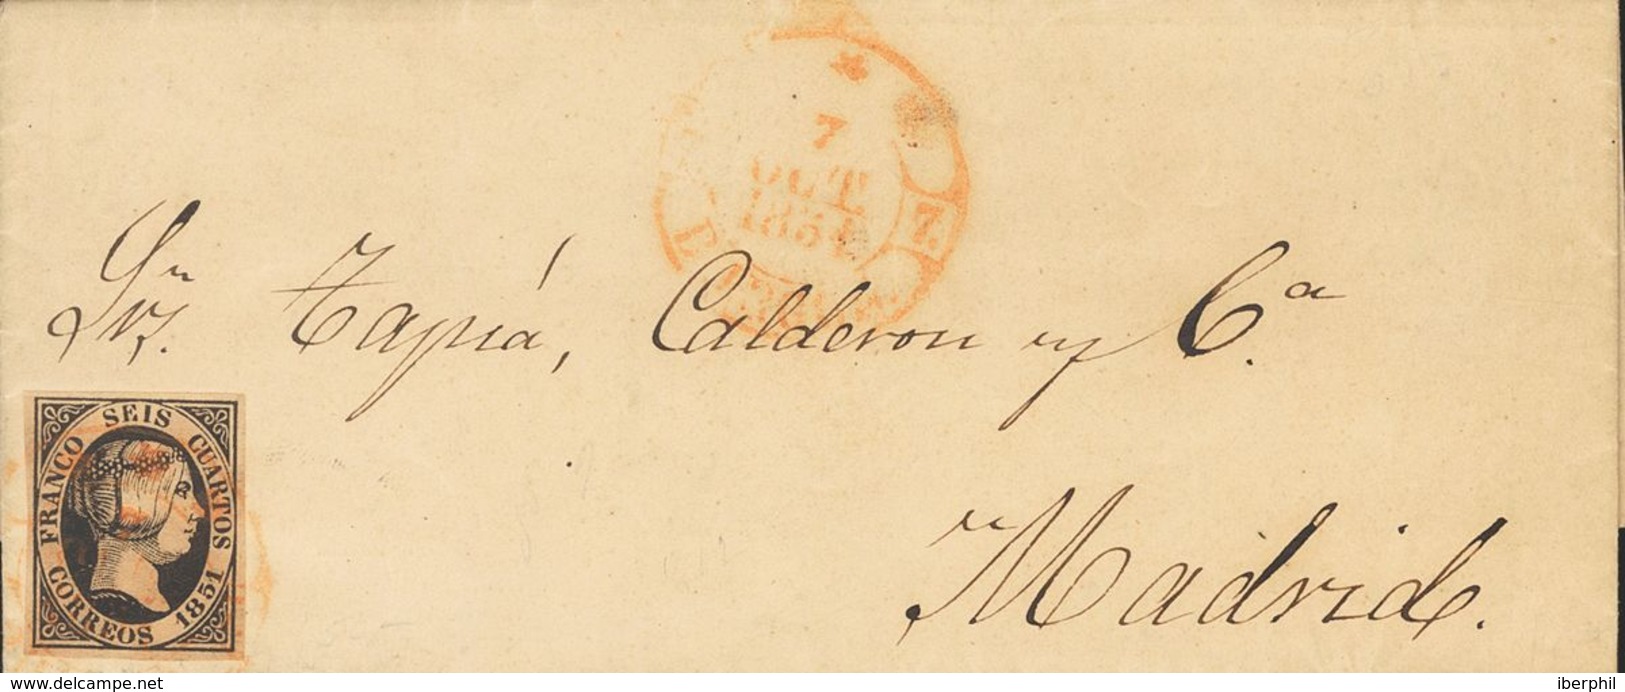 7
OCT.
1851
7.
E
Srs. Tapiá, Calderon y Cª.
FRANCO SEIS CUARTOS
CORREOS 1851
Madrid.
www.delcampe.net
iberphil